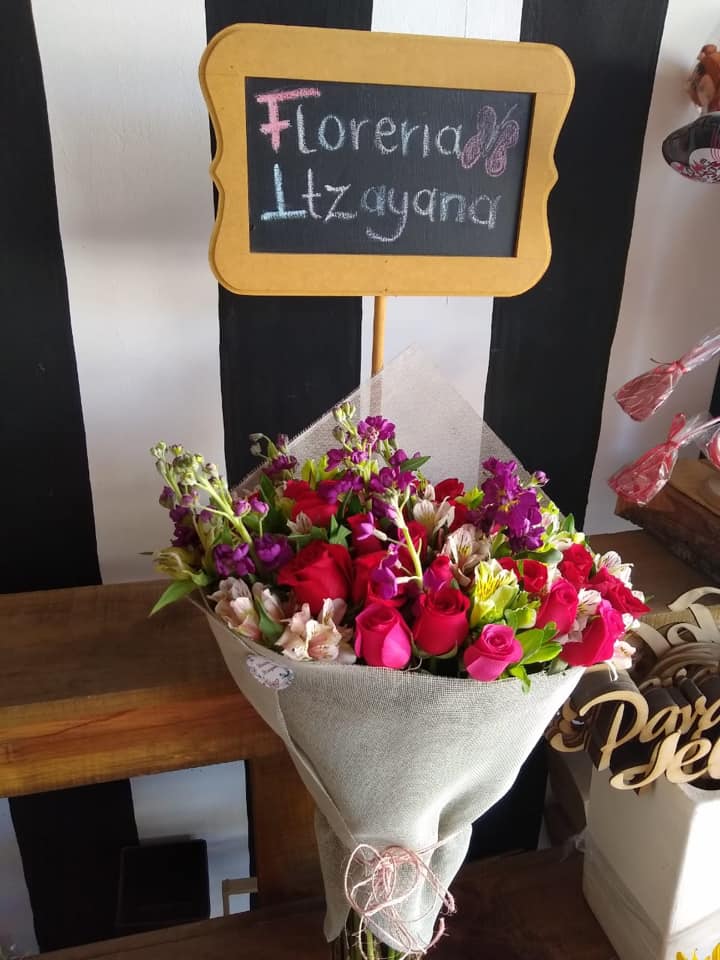 Floreria
Itzayana
Para